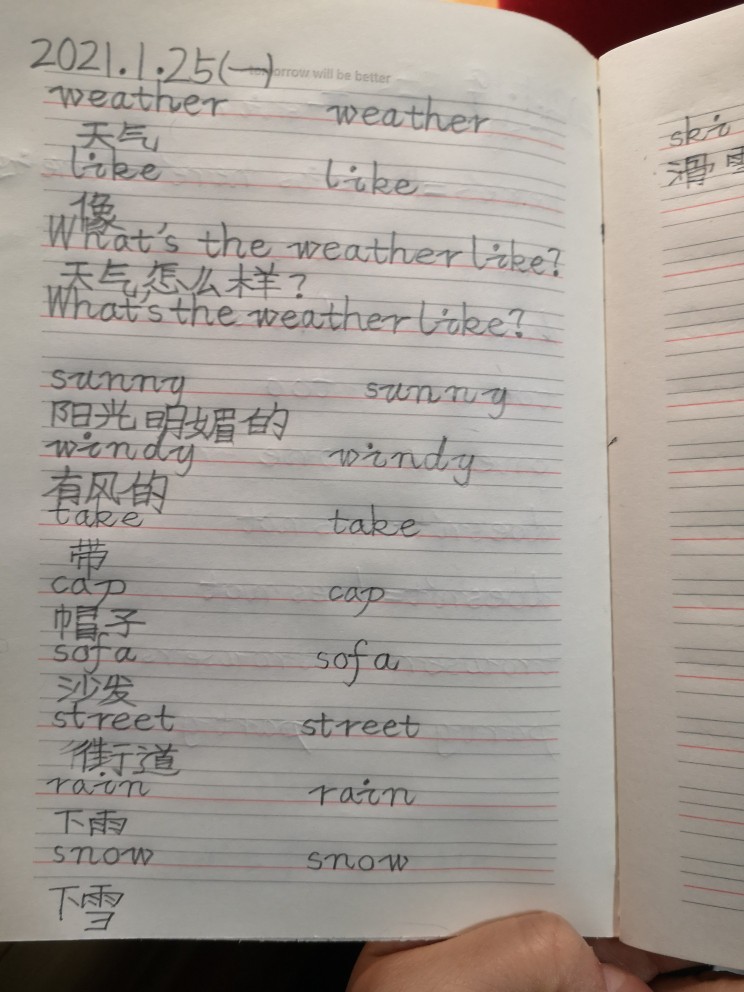 2021.1.25(一)
tomorrow will be better
weather weather
天气
like like
像
What's the weather like?
天气怎么样?
What's the weather like?
sunny sunny
阳光明媚的
windy windy
有风的
take take
带
cap cap
帽子
sofa sofa
沙发
street street
街道
rain rain
下雨
snow snow
下雪
ski
滑雪